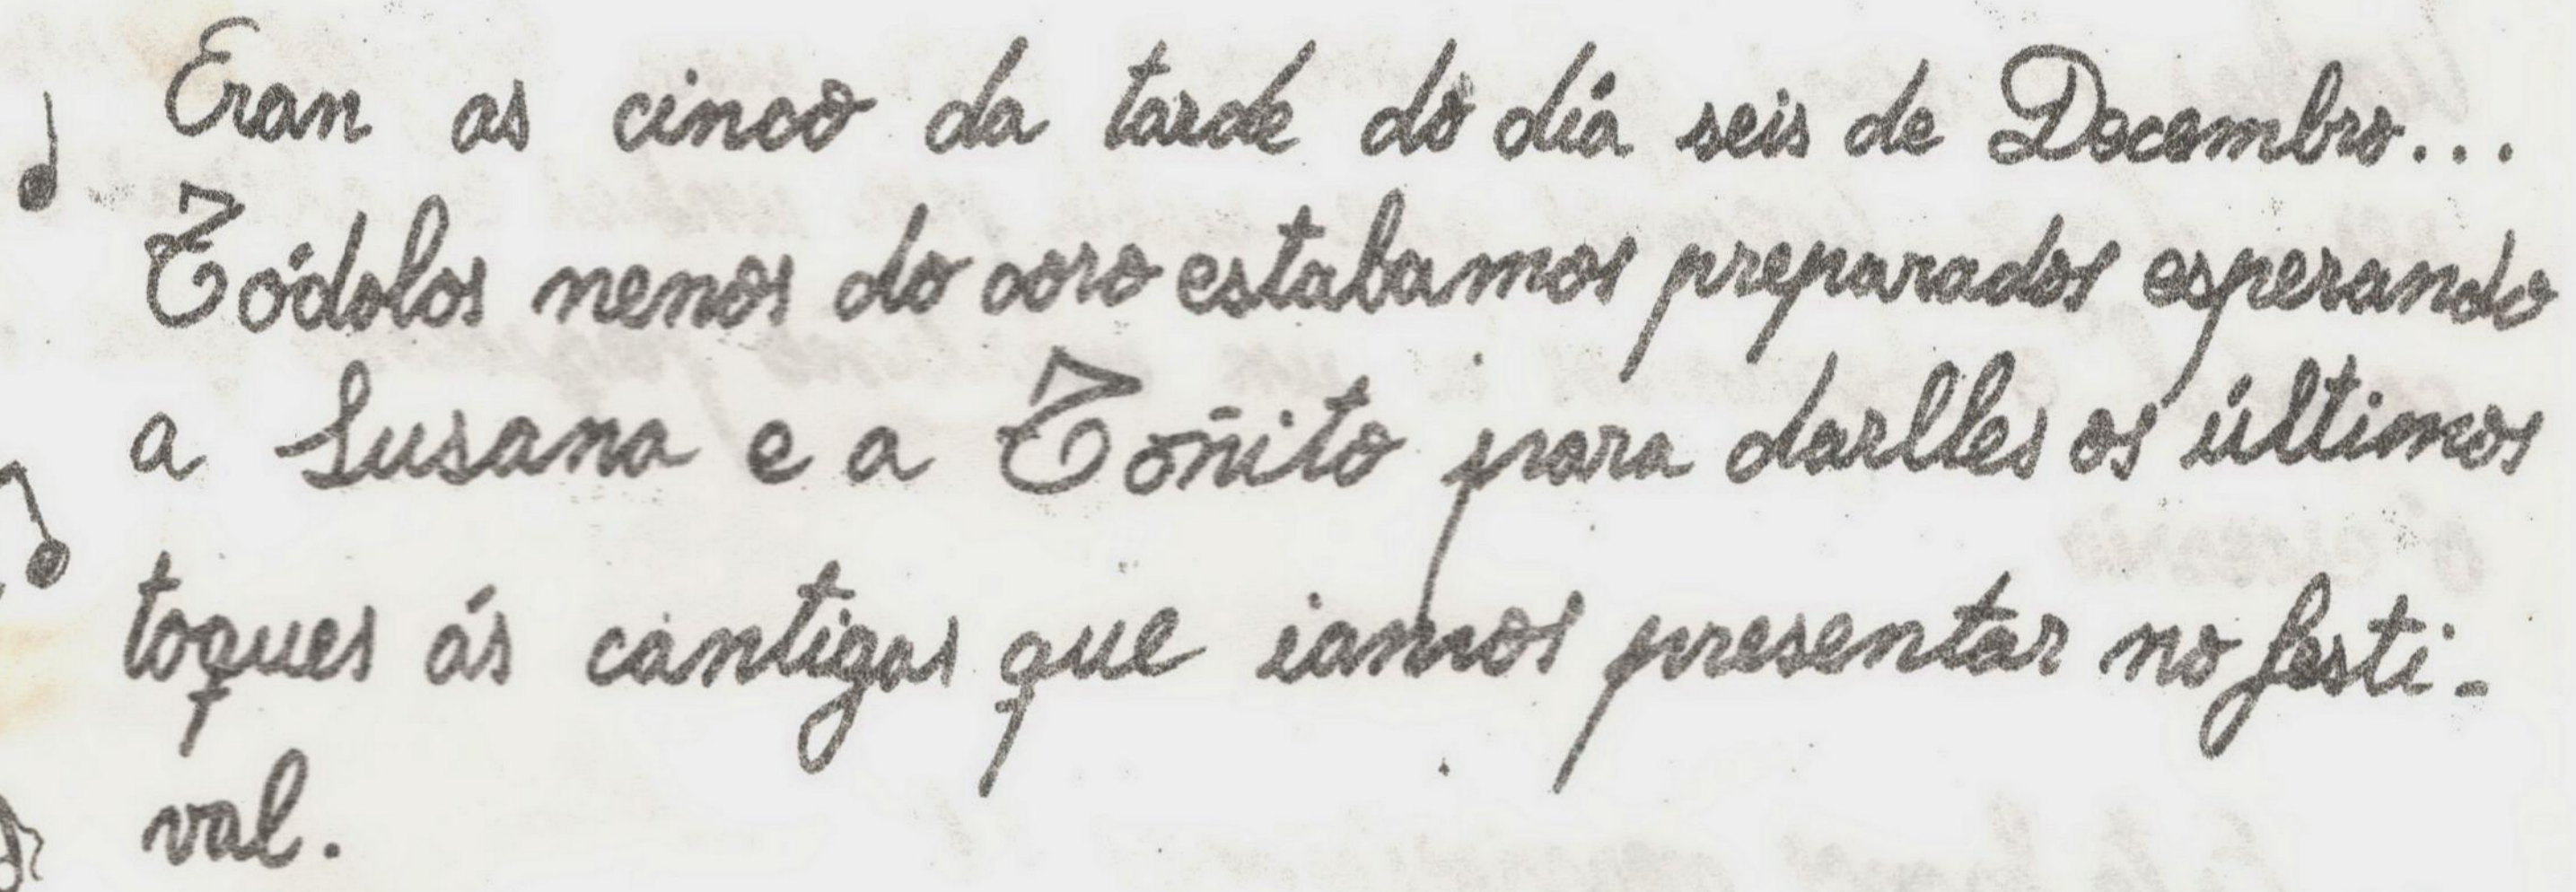 Eran as cinco da tarde do día seis de Decembro...
Tódolos nenos do coro estabamos preparados esperando
a Susana e a Toñito para darlles os últimos
toques ás cantigas que iamos presentar no festi-
val.